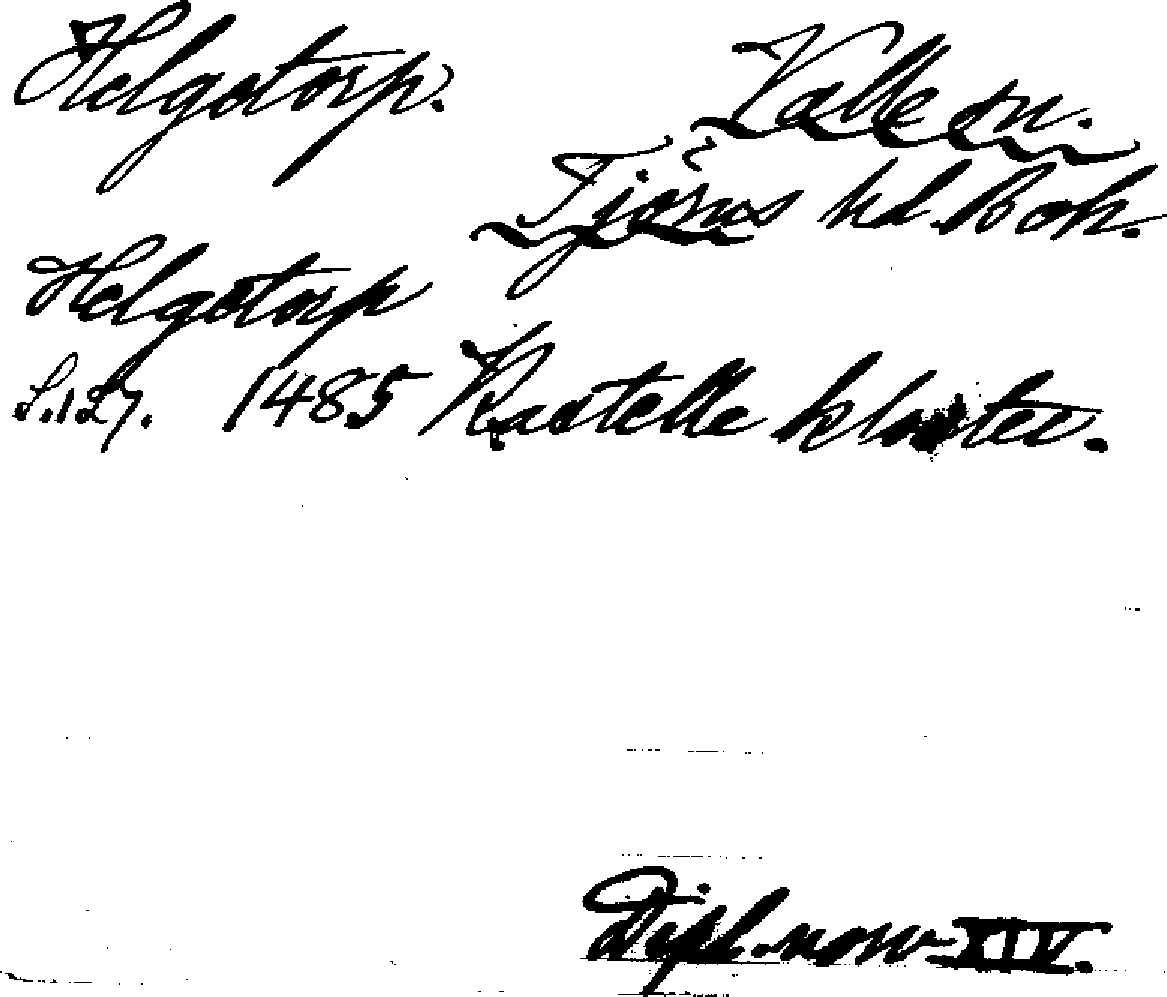 Helgatorp.
Valla sn.
Tjörns hd. Boh.
Helgotorp
S. 127. 1485 Kastelle kloster.
Dipl. norv. XIV.